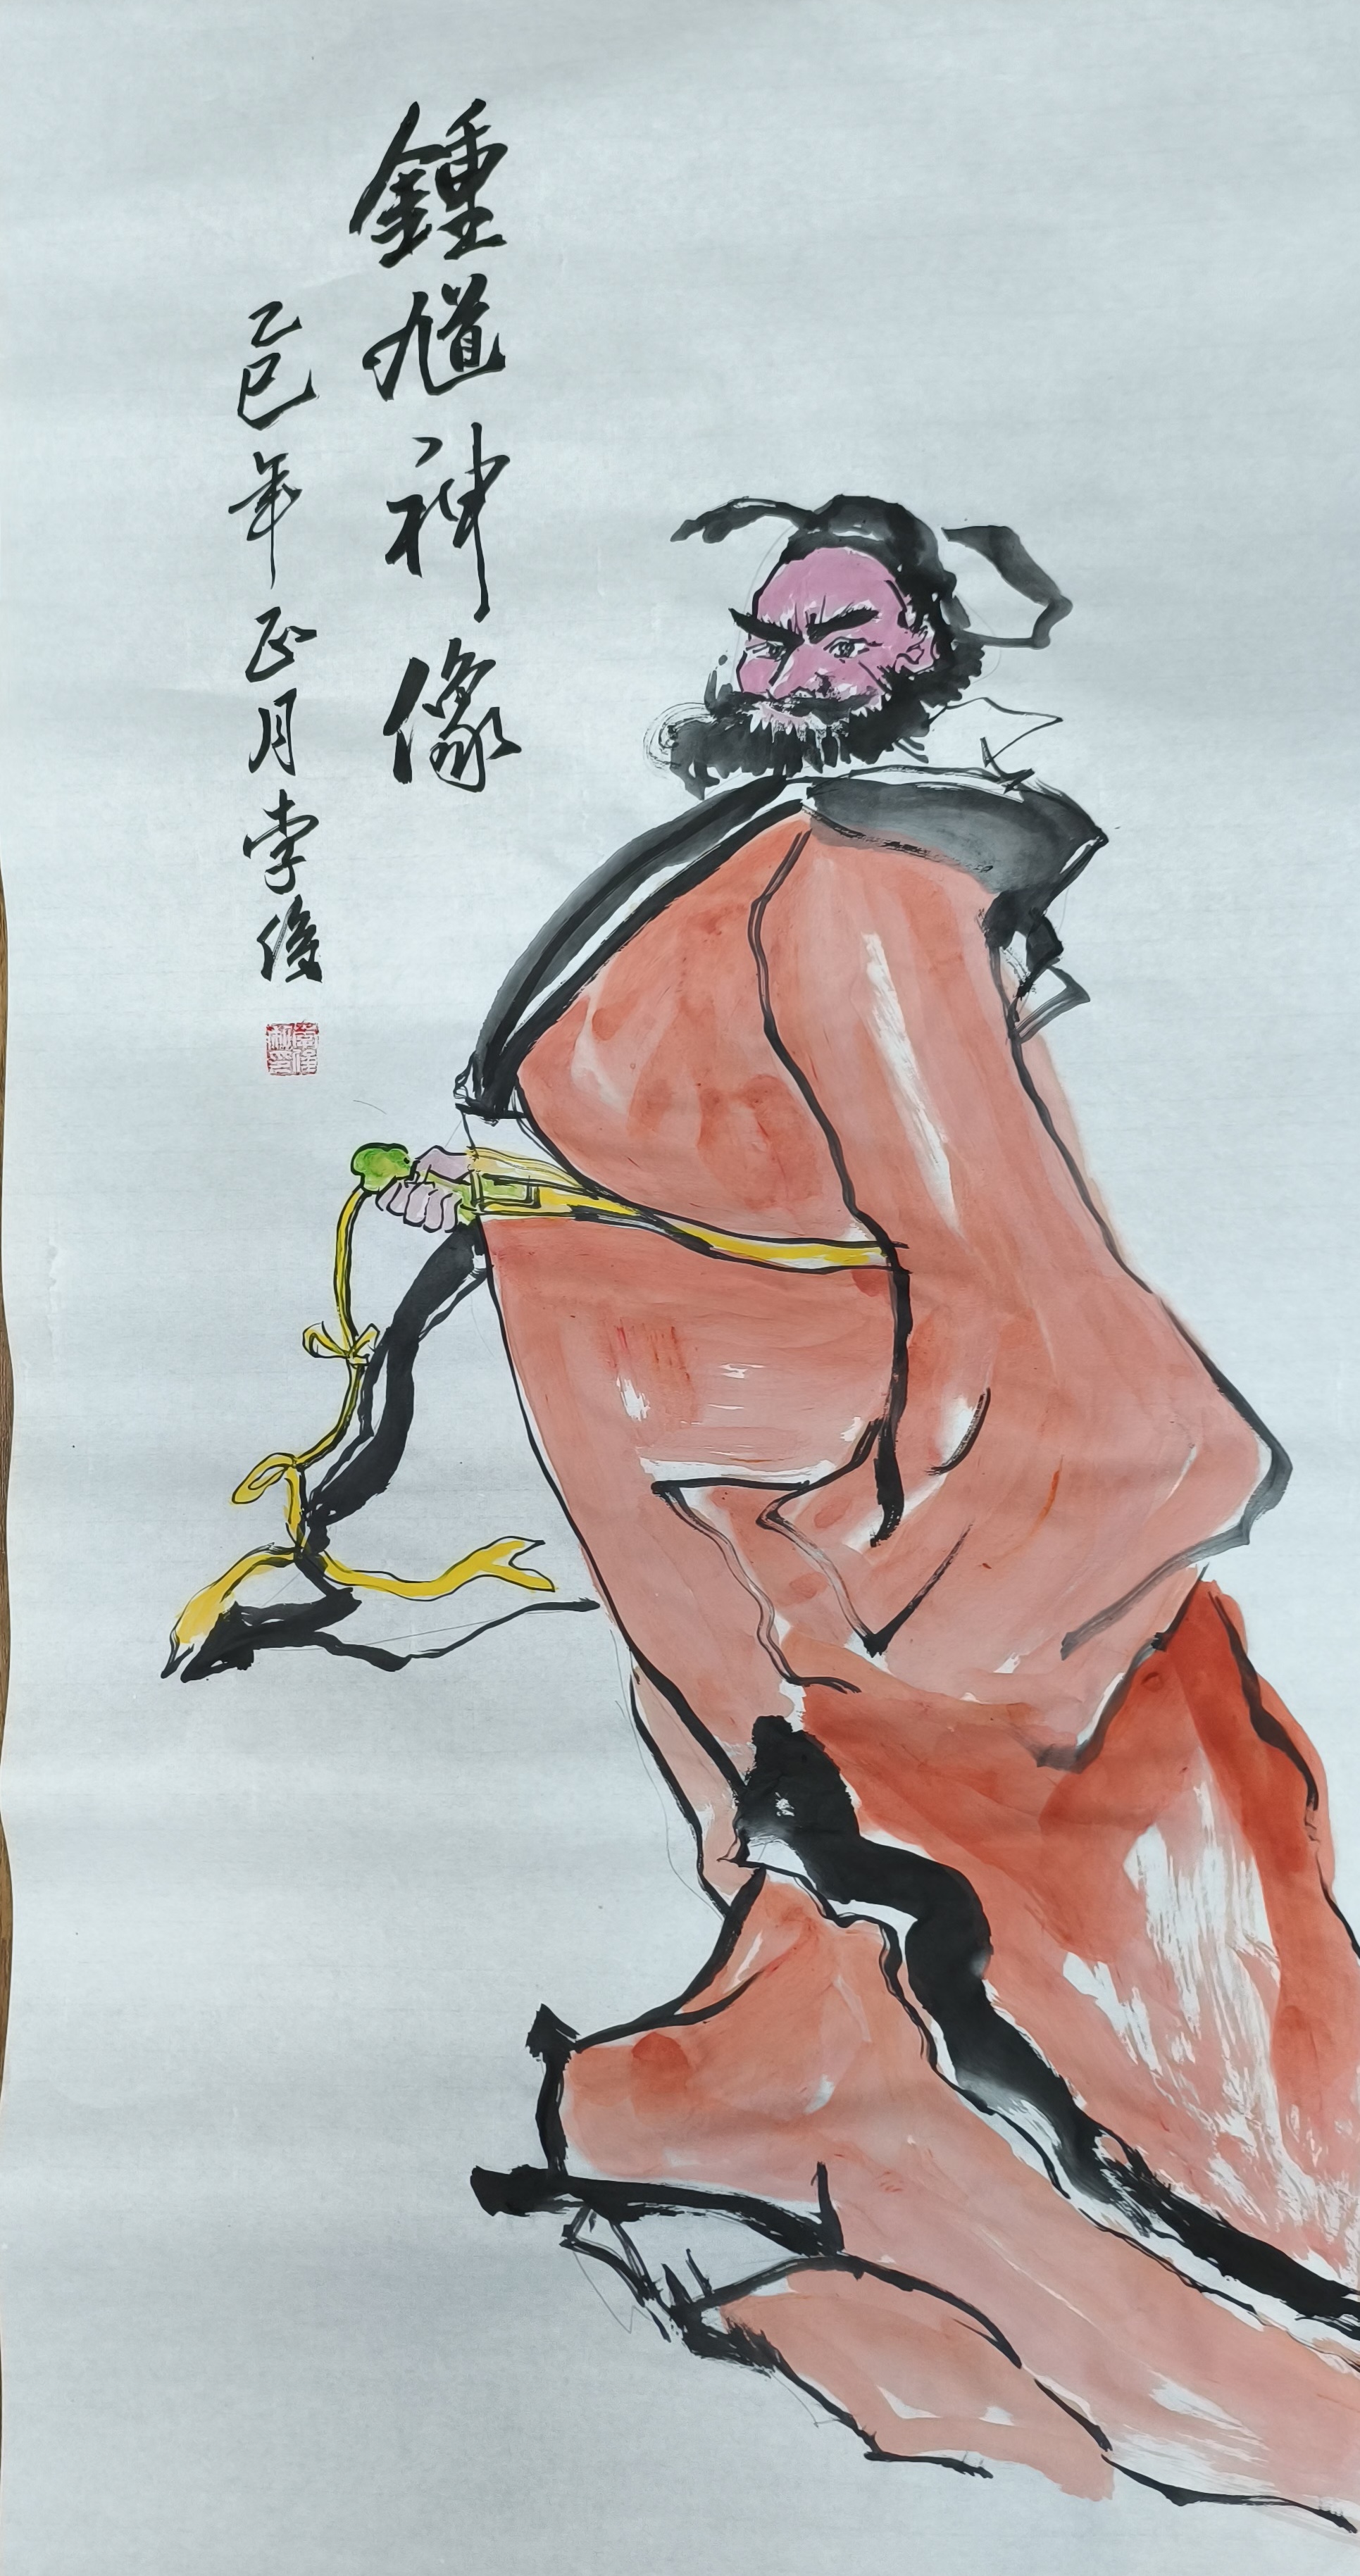 鍾馗神像
乙巳年正月李俊